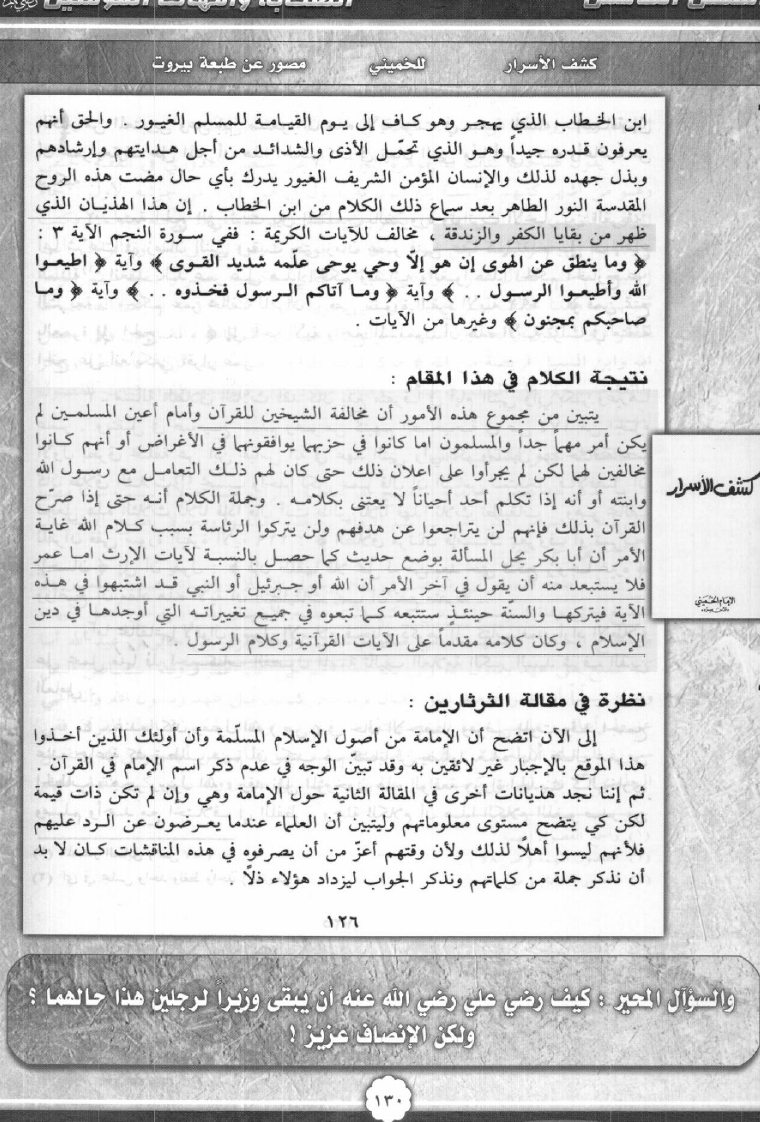 كشف الأسرار للخميني مصور عن طبعة بيروت
ابن الخطاب الذي يهجر وهو كاف إلى يوم القيامة للمسلم الغيور . والحق أنهم
يعرفون قدره جيداً وهو الذي تحمّل الأذى والشدائد من أجل هدايتهم وإرشادهم
وبذل جهده لذلك والإنسان المؤمن الشريف الغيور يدرك بأي حال مضت هذه الروح
المقدسة النور الطاهر بعد سماع ذلك الكلام من ابن الخطاب . إن هذا الهذيان الذي
ظهر من بقايا الكفر والزندقة ، مخالف للآيات الكريمة : ففي سورة النجم الآية ٣ :
﴿ وما ينطق عن الهوى إن هو إلاّ وحي يوحى علّمه شديد القوى ﴾ وآية ﴿ اطيعوا
الله وأطيعوا الرسول . . ﴾ وآية ﴿ وما آتاكم الرسول فخذوه . . ﴾ وآية ﴿ وما
صاحبكم بمجنون ﴾ وغيرها من الآيات .
نتيجة الكلام في هذا المقام :
يتبين من مجموع هذه الأمور أن مخالفة الشيخين للقرآن وأمام أعين المسلمين لم
يكن أمر مهماً جداً والمسلمون اما كانوا في حزبهما يوافقونهما في الأغراض أو أنهم كانوا
مخالفين لهما لكن لم يجرأوا على اعلان ذلك حتى كان لهم ذلك التعامل مع رسول الله
وابنته أو أنه إذا تكلم أحد أحياناً لا يعتنى بكلامه . وجملة الكلام أنه حتى إذا صرّح
القرآن بذلك فإنهم لن يتراجعوا عن هدفهم ولن يتركوا الرئاسة بسبب كلام الله غاية
الأمر أن أبا بكر يحل المسألة بوضع حديث كما حصل بالنسبة لآيات الإرث اما عمر
فلا يستبعد منه أن يقول في آخر الأمر أن الله أو جبرئيل أو النبي قد اشتبهوا في هذه
الآية فيتركها والسنّة حينئذ ستتبعه كما تبعوه في جميع تغييراته التي أوجدها في دين
الإسلام ، وكان كلامه مقدماً على الآيات القرآنية وكلام الرسول .
كشف الأسرار
الإمام الخميني
نظرة في مقالة الثرثارين :
إلى الآن اتضح أن الإمامة من أصول الإسلام المسلّمة وأن أولئك الذين أخذوا
هذا الموقع بالإجبار غير لائقين به وقد تبيّن الوجه في عدم ذكر اسم الإمام في القرآن .
ثم إننا نجد هذيانات أخرى في المقالة الثانية حول الإمامة وهي وإن لم تكن ذات قيمة
لكن كي يتضح مستوى معلوماتهم وليتبين أن العلماء عندما يعرضون عن الرد عليهم
فلأنهم ليسوا أهلاً لذلك ولأن وقتهم أعزّ من أن يصرفوه في هذه المناقشات كان لا بد
أن نذكر جملة من كلماتهم ونذكر الجواب ليزداد هؤلاء ذلاً .
١٢٦
والسؤآل المحير : كيف رضي علي رضي الله عنه أن يبقى وزيراً لرجلين هذا حالهما ؟
ولكن الإنصاف عزيز !
١٣٠